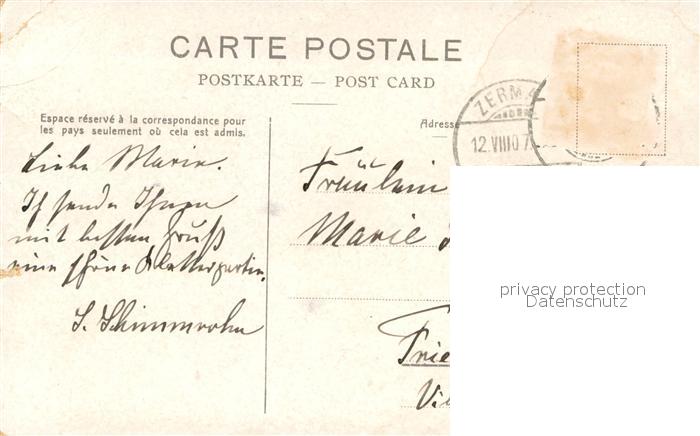 CARTE POSTALE
POSTKARTE — POST CARD
Espace réservé à la correspondance pour
les pays seulement où cela est admis.
Adresse
ZERMA
12.VIII07
Liebe Marie.
Ich sende Ihnen
mit besten Gruß
eine schöne Kletterpartie.
Fräulein
Marie
Frie
Vi
privacy protection
Datenschutz